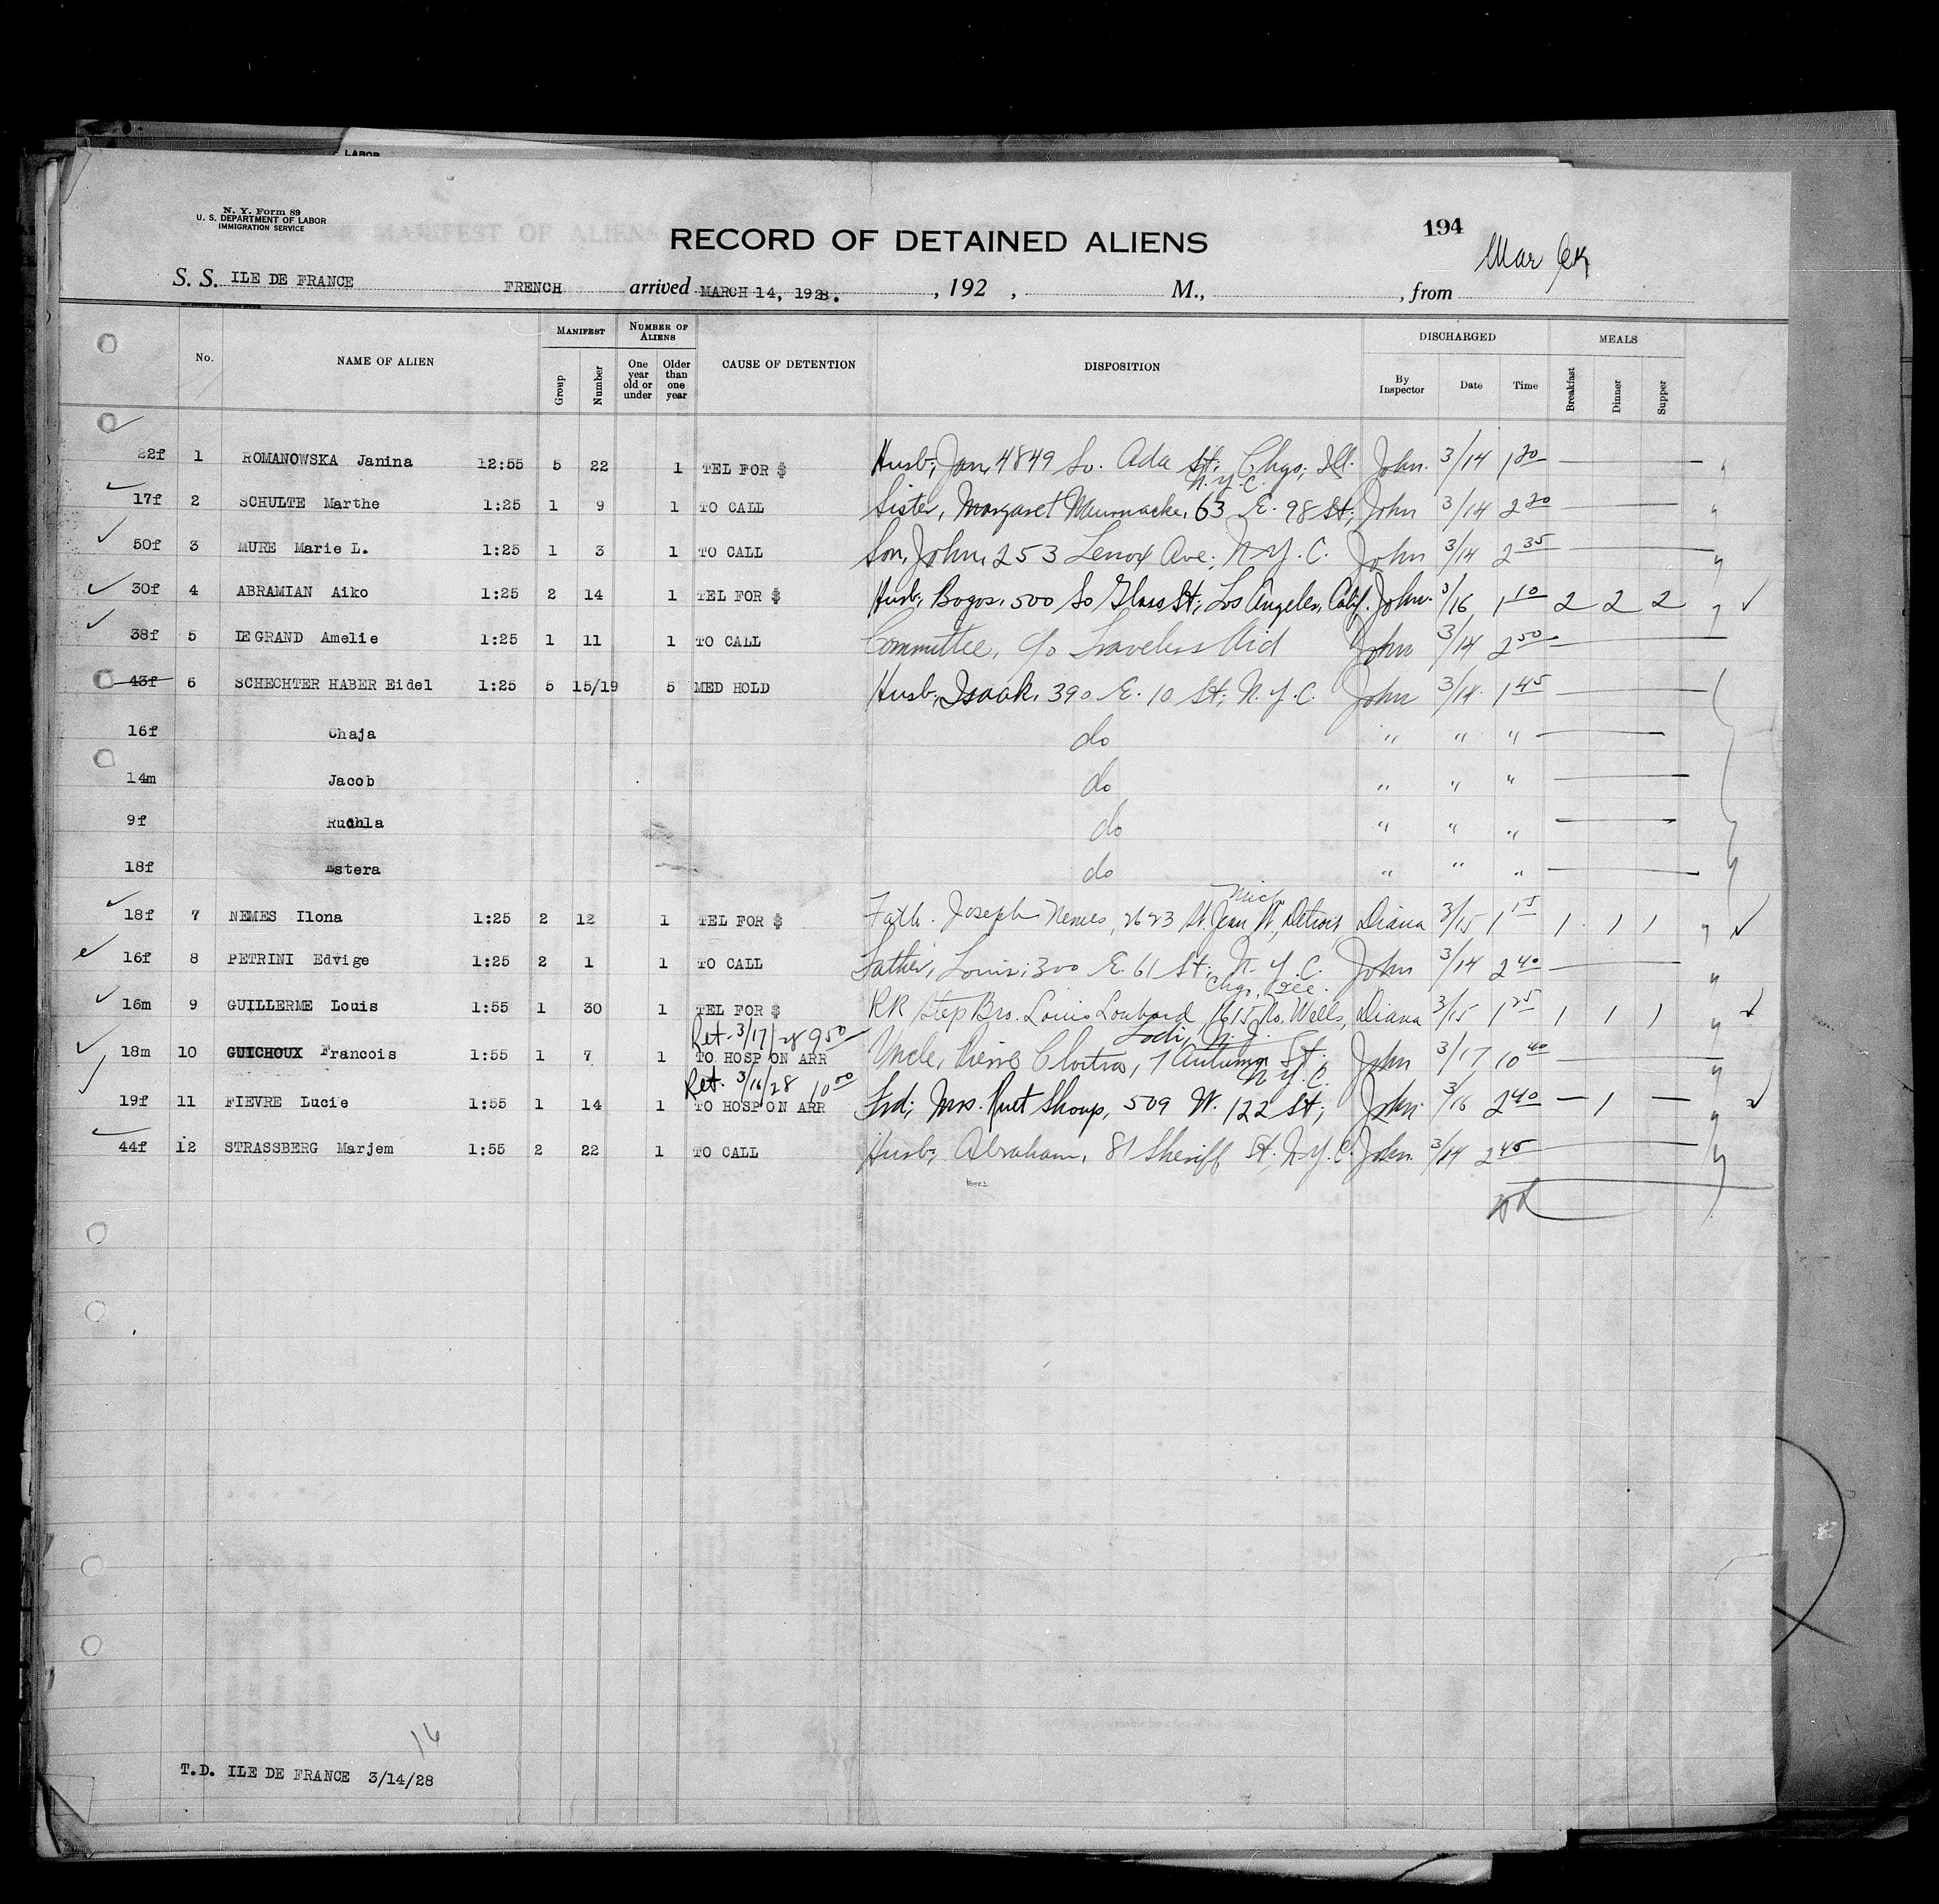 LABOR
N. Y. Form 89
U. S. DEPARTMENT OF LABOR
IMMIGRATION SERVICE
RECORD OF DETAINED ALIENS
194
Mar
S. S. ILE DE FRANCE FRENCH arrived MARCH 14, 1928. , 192 , M., , from
No. NAME OF ALIEN MANIFEST Group Number NUMBER OF ALIENS One year old or under Older than one year CAUSE OF DETENTION DISPOSITION DISCHARGED By Inspector Date Time MEALS Breakfast Dinner Supper
22f 1 ROMANOWSKA Janina 12:55 5 22 1 TEL FOR $ Husb; Jan, 4849 So. Ada St; Chgo; Ill. John. 3/14 1 20
N.Y.C.
17f 2 SCHULTE Marthe 1:25 1 9 1 TO CALL Sister, Margaret 63 E. 98 St; John 3/14 2 20
50f 3 MURE Marie L. 1:25 1 3 1 TO CALL Son, John, 253 Lenox Ave; N.Y.C. John 3/14 2 35
30f 4 ABRAMIAN Aiko 1:25 2 14 1 TEL FOR $ Husb; Bogos, 500 So Glass St; Los Angeles, Calif. John. 3/16 1 10 2 2 2
38f 5 LEGRAND Amelie 1:25 1 11 1 TO CALL Committee, c/o Travelers Aid John 3/14 2 50
43f 6 SCHECHTER HABER Eidel 1:25 5 15/19 5 MED HOLD Husb; Isaak, 390 E. 10 St; N.Y.C. John 3/14. 1 45
16f Chaja do " " "
14m Jacob do " " "
9f Ruchla do " " "
18f Estera do " " "
Mich
18f 7 NEMES Ilona 1:25 2 12 1 TEL FOR $ Fath. Joseph Nemes, 2623 St. Jean St, Detroit Diana 3/15 1 15 1 1 1
16f 8 PETRINI Edvige 1:25 2 1 1 TO CALL Father, Louis; 300 E. 61 St; N.Y.C. John 3/14 2 40
Chgo, Ill.
16m 9 GUILLERME Louis 1:55 1 30 1 TEL FOR $ RR Step Bro. Louis Loubard, 1615 No. Wells, Diana 3/15 1 25 1 1 1
Ret. 3/17/28 9 50 Lodi, N.J.
18m 10 GUICHOUX Francois 1:55 1 7 1 TO HOSP ON ARR Uncle, Pierre 7 Autumn St. John 3/17 10 40
Ret. 3/16/28 10 00 N.Y.C.
19f 11 FIEVRE Lucie 1:55 1 14 1 TO HOSP ON ARR Frd; Mrs. Shoup, 509 W. 122 St; John. 3/16 2 40 1
44f 12 STRASSBERG Marjem 1:55 2 22 1 TO CALL Husb; Abraham, 81 Sheriff St. N.Y.C. John. 3/14 2 45
16
T.D. ILE DE FRANCE 3/14/28